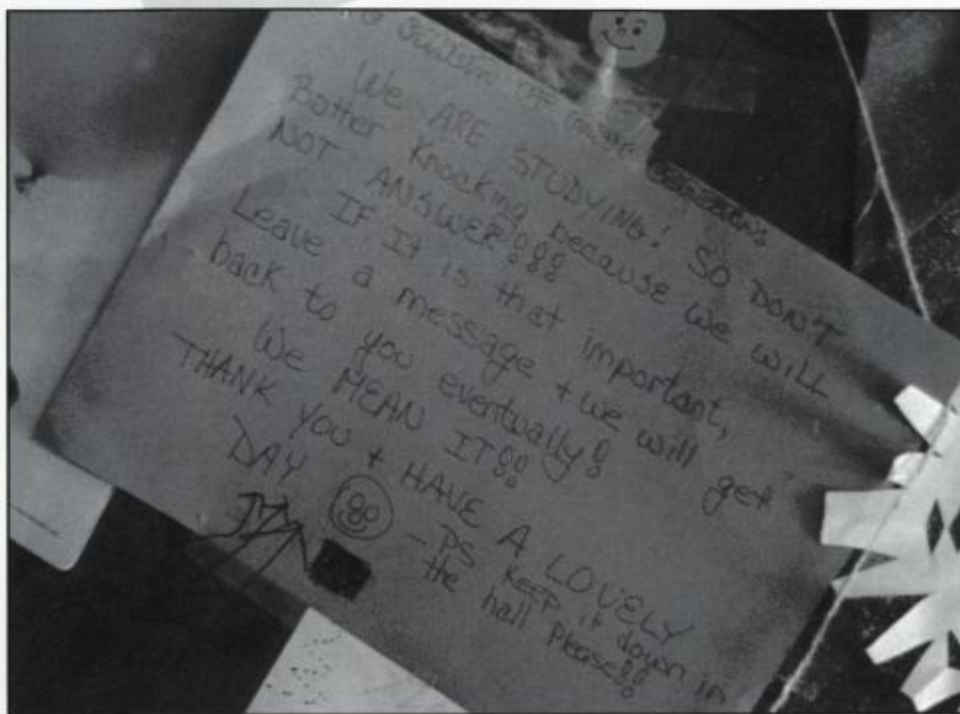 We ARE STUDYING! SO DON'T
Botter knocking because we will
NOT ANSWER!!!
IF It is that important,
Leave a message + we will get
back to you eventually!
We MEAN IT!!
THANK YOU + HAVE A LOVELY
DAY
-PS keep it down in
the hall please!!